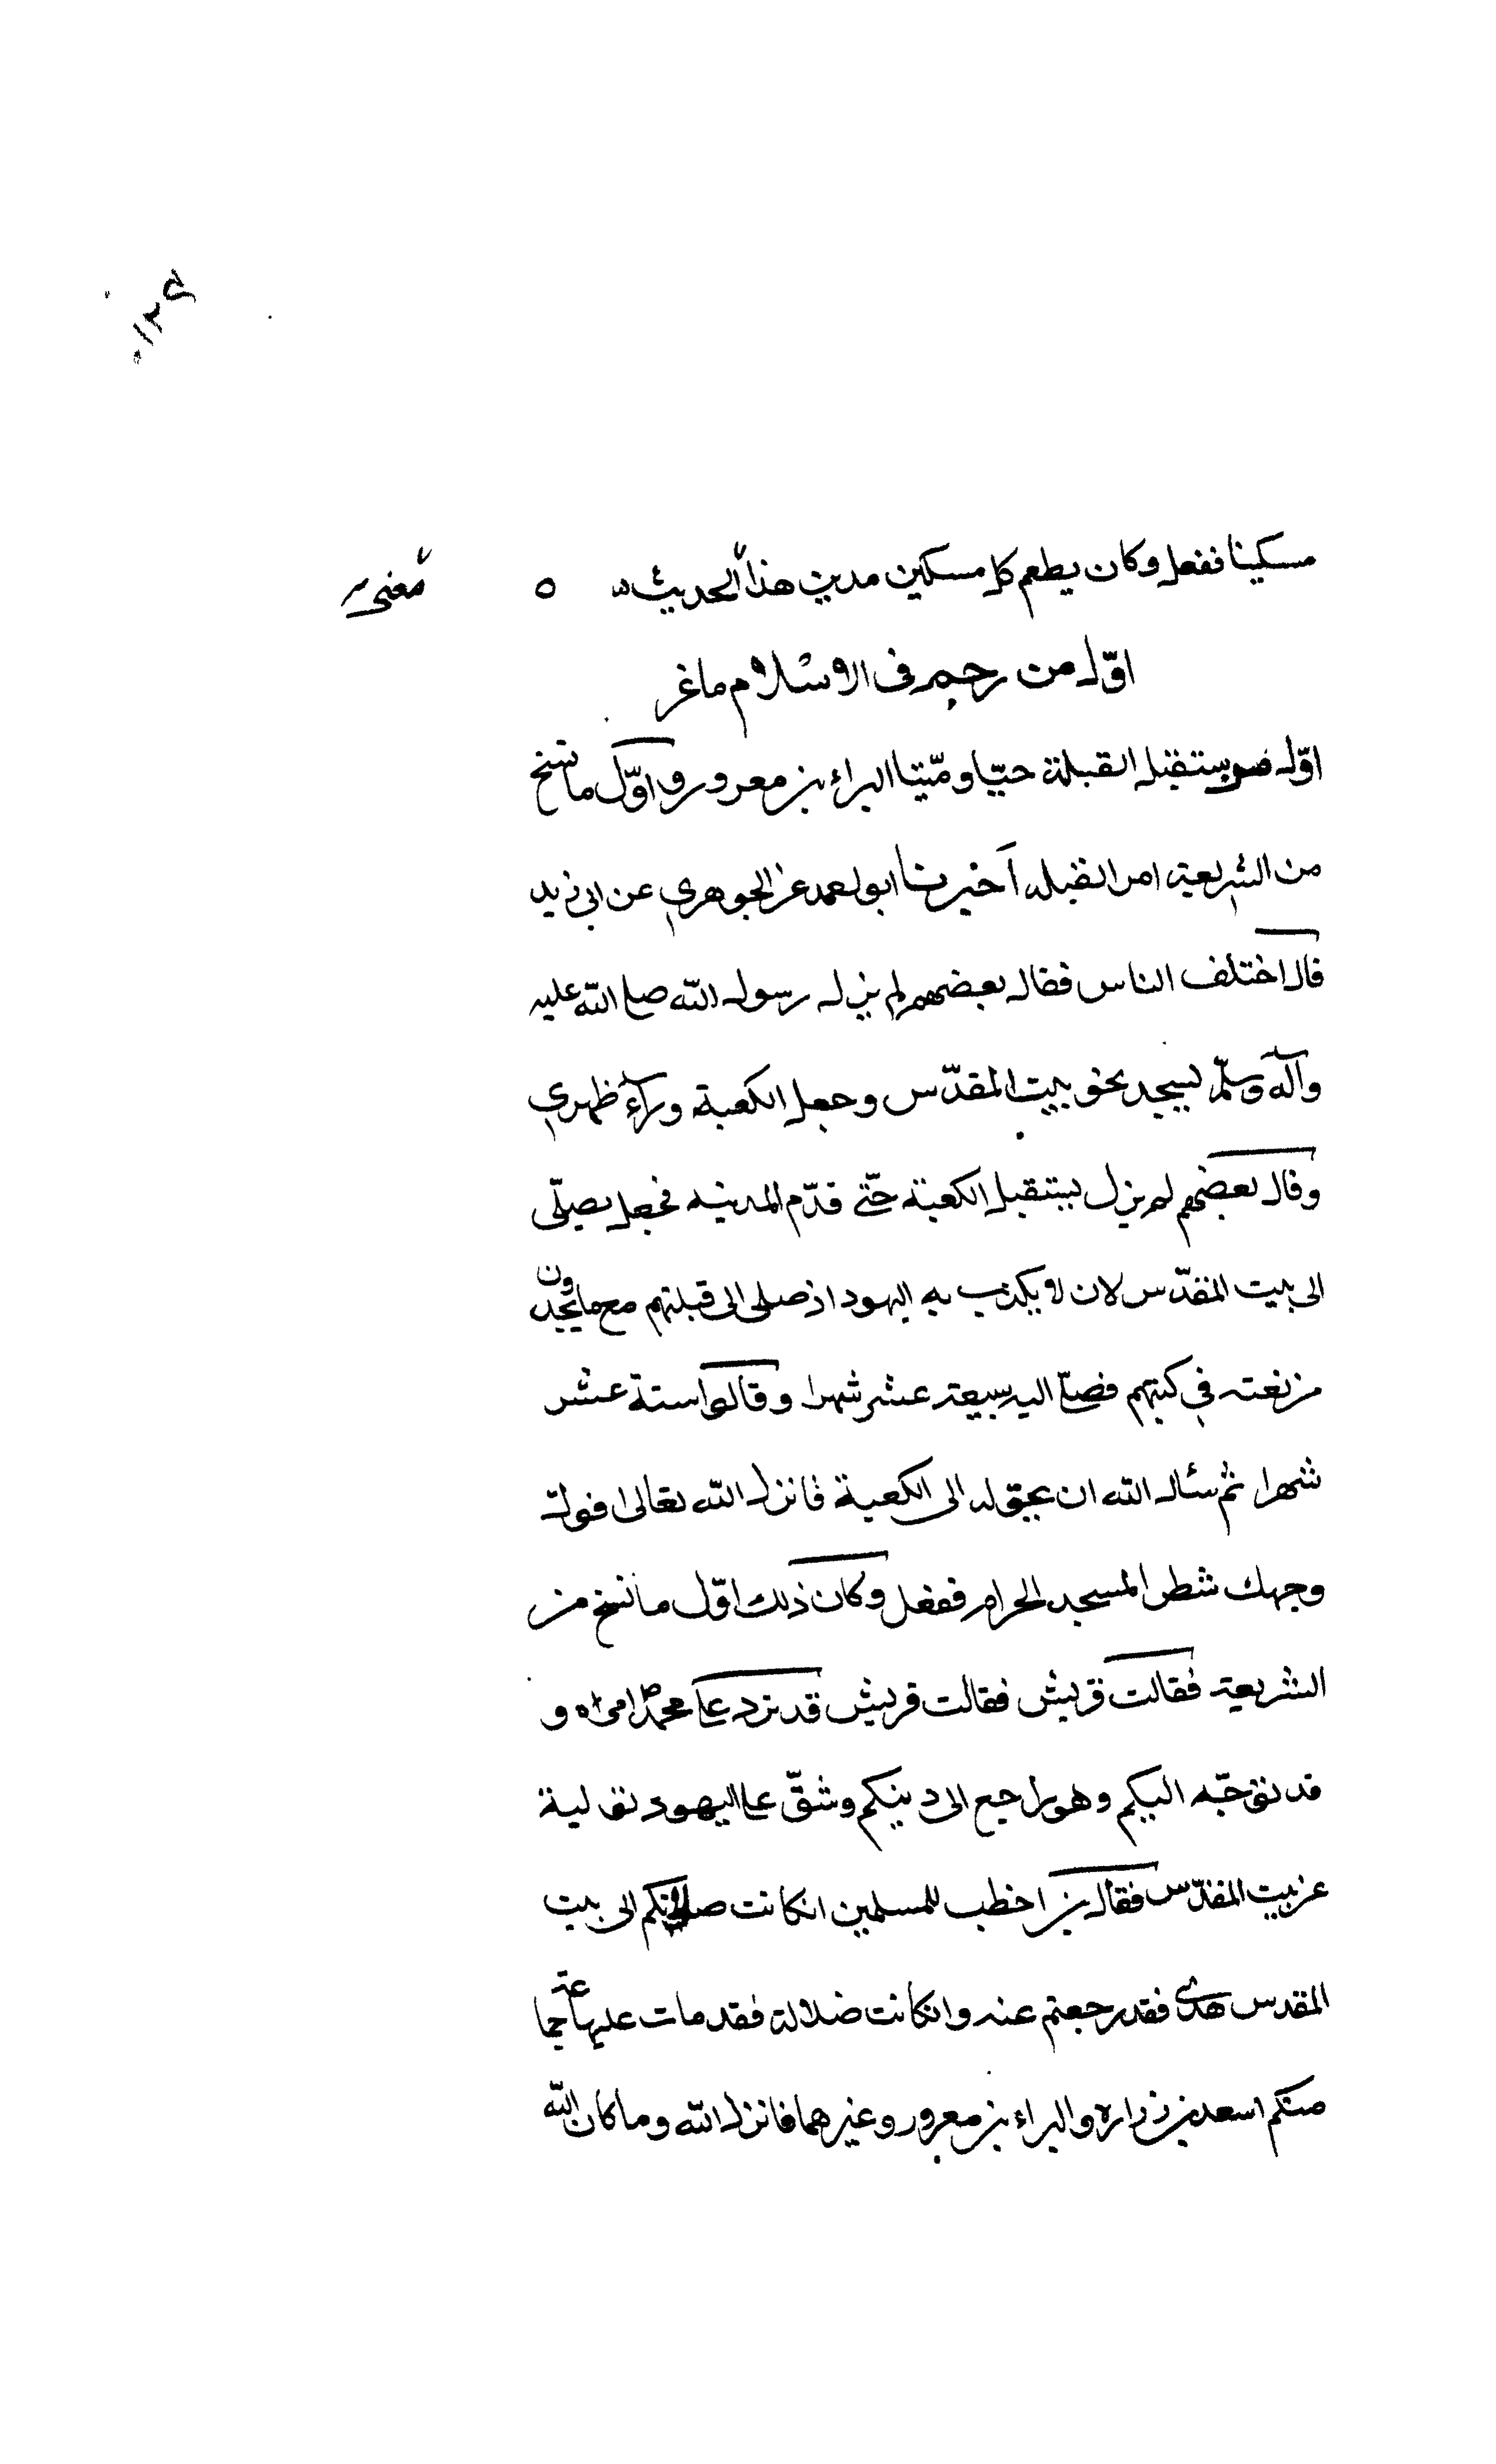 مسكينا ففعل وكان يطعم كل مسكين مدين هذا الحديث ه معنى
اوّل من رجم فى الاسلام ماغر
اوّل من يستقبل القبلة حيّا وميّتا البراء بن معرور واوّل ما نسخ
من الشريعة امر القبله اخبرنا ابو احمد عن الجوهري عن ابى زيد
قال اختلف الناس فقال بعضهم لم يزل رسول الله صلى الله عليه
وآله وسلّم يسجد نحو بيت المقدّس وجعل الكعبة ورآء ظهري
وقال بعضهم لم يزل يستقبل الكعبة حتّى قدّم المدينه فجعل يصلّى
الى بيت المقدّس لان لا يكذب به اليهود اذ صلى الى قبلتهم مع ما يجدون
من نعته في كتبهم فصلى اليه سبعة عشر شهرا وقالوا ستة عشر
شهرا ثم سئال الله ان يحوله الى الكعبة فانزل الله تعالى افولّ
وجهك شطر المسجد الحرام ففعل وكان ذلك اوّل ما نسخ من
الشريعة فقالت قريش فقالت قريش قد تردد على محمد امره و
قد توجّه اليكم وهو راجع الى دينكم وشقّ على اليهود توليه
عن بيت المقدّس فقال بن اخطب للمسلمين انكانت صلاتكم الى بيت
المقدس هدى فقد رجعتم عنه وانكانت ضلالة فقد مات عليها جماعة
منكم اسعد بن زراره والبراء بن معرور وغيرهما فانزل الله وما كان الله